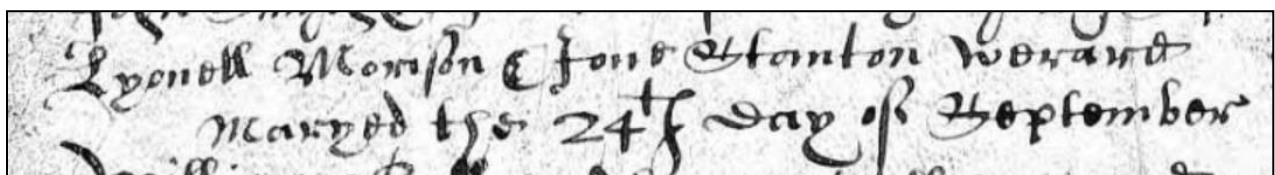 Lyonell Morison & Jone Stanton werard
Maryed the 24th day of September